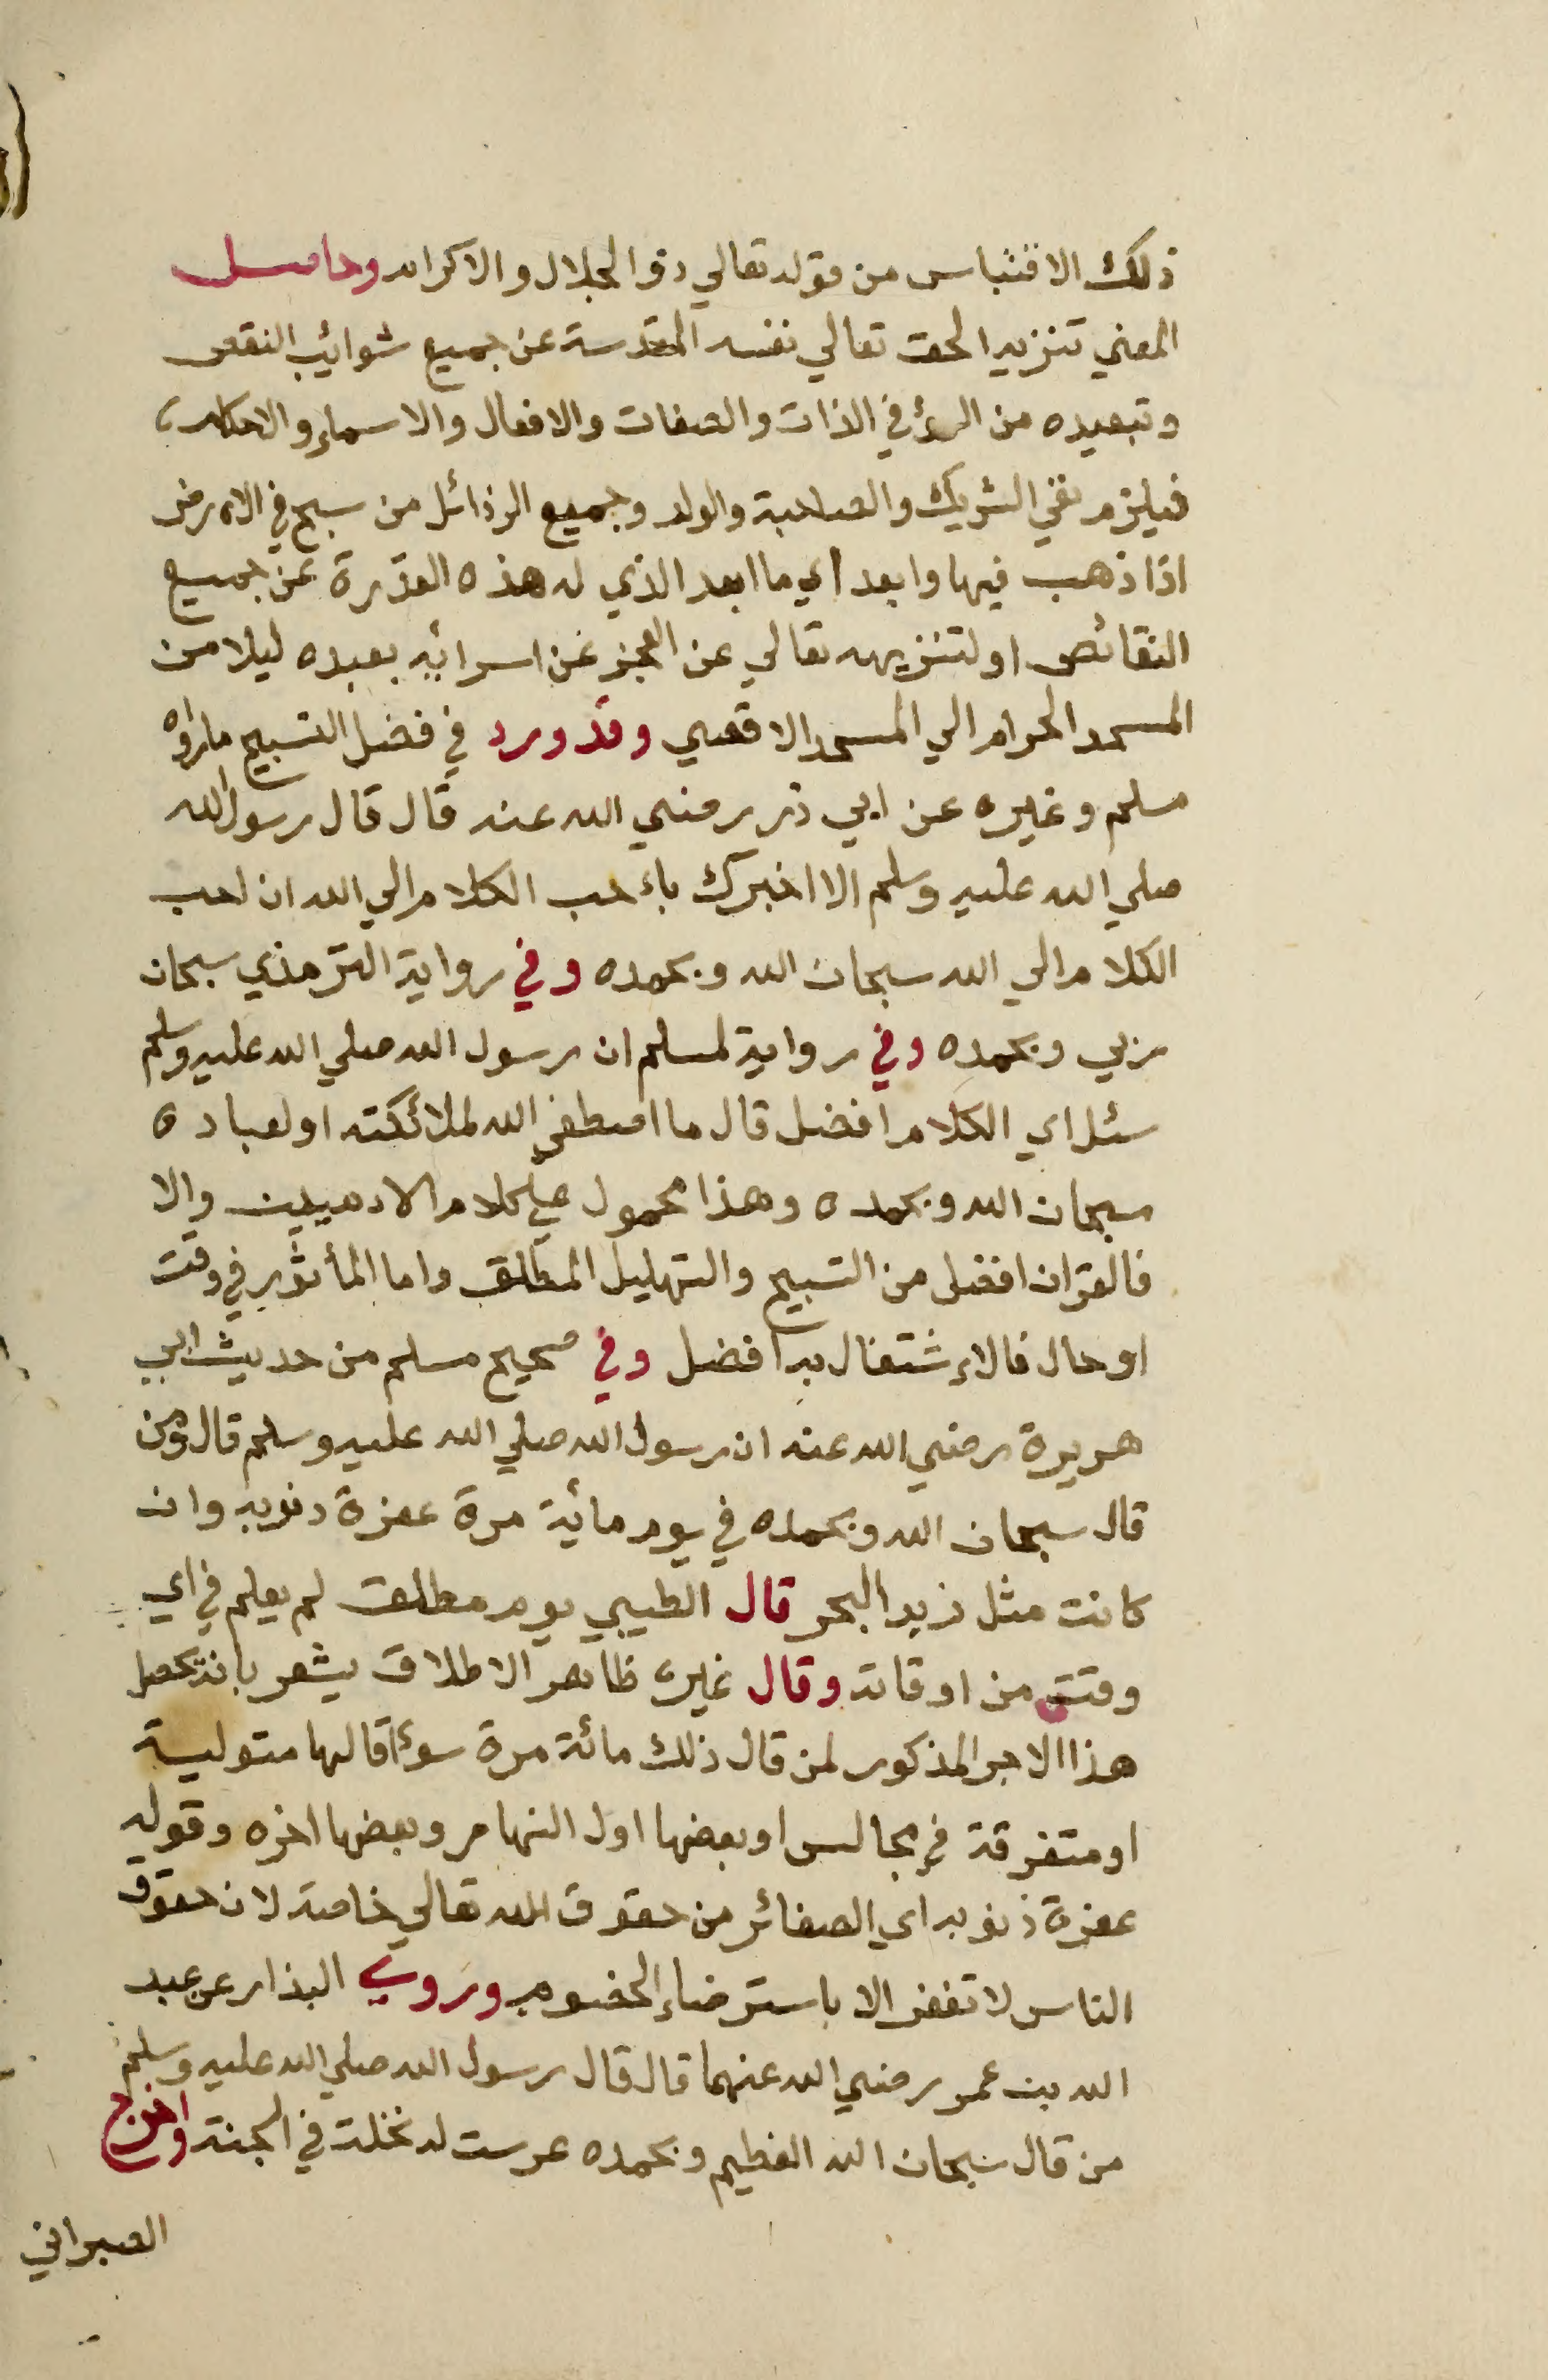 ذلك الاقتباس من قوله تعالي ذو الجلال والاكرام وحاصل
المعني تنزيه الحق تعالي نفسه المقدسة عن جميع شوائب النقص
وتبعيده من السؤ في الذات والصفات والافعال والاسماء والاحكام
فيلزم نفي الشريك والصاحبة والولد وجميع الرذائل من سبح في الارض
اذا ذهب فيها وابعد اي ما ابعد الذي له هذه القدرة عن جميع
النقائص او لتنزيهه تعالي عن العجز عن اسرائه بعبده ليلا من
المسجد الحرام الي المسجد الاقصي وقد ورد في فضل التسبيح مارواه
مسلم وغيره عن ابي ذر رضي الله عنه قال قال رسول الله
صلي الله عليه وسلم الا اخبرك باءحب الكلام الي الله ان احب
الكلام الي الله سبحان الله وبحمده وفي رواية الترمذي سبحان
ربي وبحمده وفي رواية لمسلم ان رسول الله صلي الله عليه وسلم
سئل اي الكلام افضل قال ما اصطفي الله لملائكته او لعباده
سبحان الله وبحمده وهذا محمول علي كلام الادميين والا
فالقران افضل من التسبيح والتهليل المطلق واما المأثور في وقت
او حال فالاءشتغال به افضل وفي صحيح مسلم من حديث ابي
هريرة رضي الله عنه ان رسول الله صلي الله عليه وسلم قال ومن
قال سبحان الله وبحمده في يوم مائة مرة غفرة ذنوبه وان
كانت مثل زبد البحر قال الطيبي يوم مطلق لم يعلم في اي
وقت من اوقاته وقال غيره ظاهر الاطلاق يشعر بانه يحصل
هذا الاجر المذكور لمن قال ذلك مائة مرة سوءآ قالها متولية
او متفرقة في مجالس او بعضها اول النهار وبعضها اخره وقوله
غفرة ذنوبه اي الصغائر من حقوق الله تعالي خاصة لان حقوق
الناس لا تغفر الا باسترضاء الخصوم وروي البذار عن عبد
الله بن عمر رضي الله عنهما قال قال رسول الله صلي الله عليه وسلم
من قال سبحان الله العظيم وبحمده غرست له نخلة في الجنة واخرج